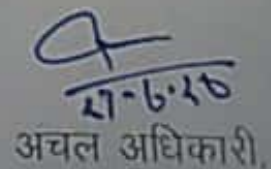 27-6-20
अंचल अधिकारी,